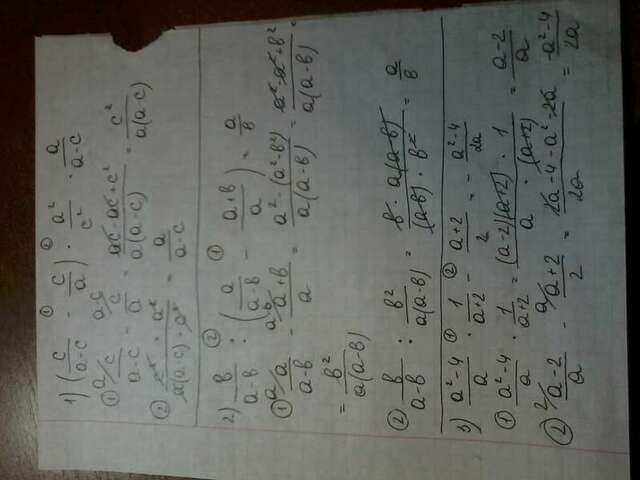 1) (c/(a-c) - c/a) · a²/c² · a/(a-c)
① c/(a-c) - c/a = (ac - ac + c²)/(a(a-c)) = c²/(a(a-c))
② (c² · a²)/(a(a-c) · c²) = a/(a-c)
2) в/(a-в) : (a/(a-в) - (a+в)/a) = a/в
① a/(a-в) - (a+в)/a = (a² - (a² - в²))/(a(a-в)) = (a² - a² + в²)/(a(a-в)) =
= в²/(a(a-в))
② в/(a-в) : в²/(a(a-в)) = (в · a(a-в))/((a-в) · в²) = a/в
3) (a²-4)/a · 1/(a+2) - (a+2)/2 = - (a²-4)/2a
① (a²-4)/a · 1/(a+2) = ((a-2)(a+2) · 1)/(a · (a+2)) = (a-2)/a
② (a-2)/a - (a+2)/2 = (2a-4-a²-2a)/2a = (-a²-4)/2a